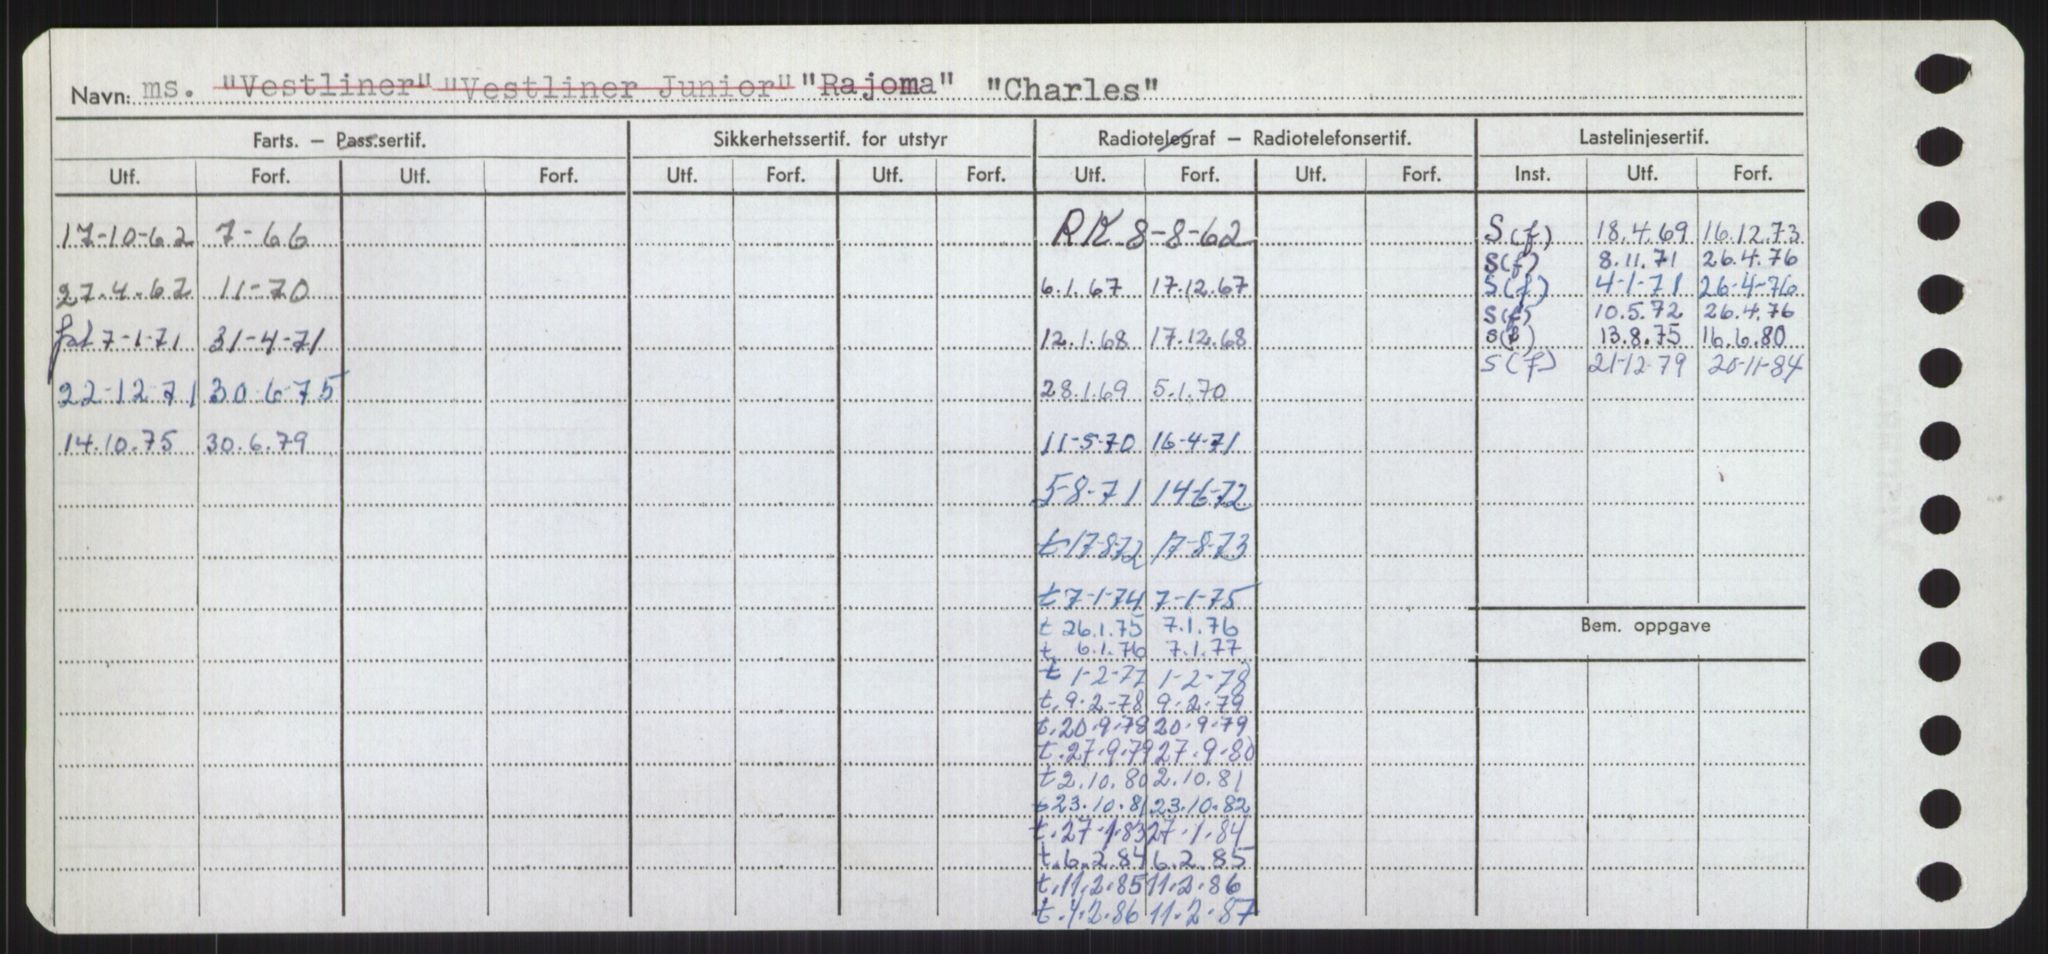 Navn: ms. "Vestliner" "Vestliner Junior" "Rajoma" "Charles"
Farts. — Pass.sertif. Sikkerhetssertif. for utstyr Radiotelegraf — Radiotelefonsertif. Lastelinjesertif.
Utf. Forf. Utf. Forf. Utf. Forf. Utf. Forf. Utf. Forf. Utf. Forf. Inst. Utf. Forf.
17-10-62 7-66
27.4.67 11-70
7-1-71 31-4-71
22-12-71 30-6-75
14.10.75 30.6.79
RK 8-8-62
6.1.67 17.12.67
12.1.68 17.12.68
28.1.69 5.1.70
11-5-70 16-4-71
5-8-71 14-6-72
t 17-8-72 17-8-73
t 7-1-74 7-1-75
t 26.1.75 7.1.76
t. 6.1.76 7.1.77
t 1-2-77 1-2-78
t. 9.2-78 9.2.79
t. 20.9.78 20.9.79
t. 27.9.79 27.9.80
t 2.10.80 2.10.81
t 23.10.81 23.10.82
t. 27.1.83 27.1.84
t. 6.2.84 6.2.85
t. 11.2.85 11.2.86
t. 4.2.86 11.2.87
S(f) 18.4.69 16.12.73
S(f) 8.11.71 26.4.76
S(f) 4-1-71 26-4-76
S(f) 10.5.72 26.4.76
S(f) 13.8.75 16.6.80
S(f) 21-12-79 20-11-84
Bem. oppgave